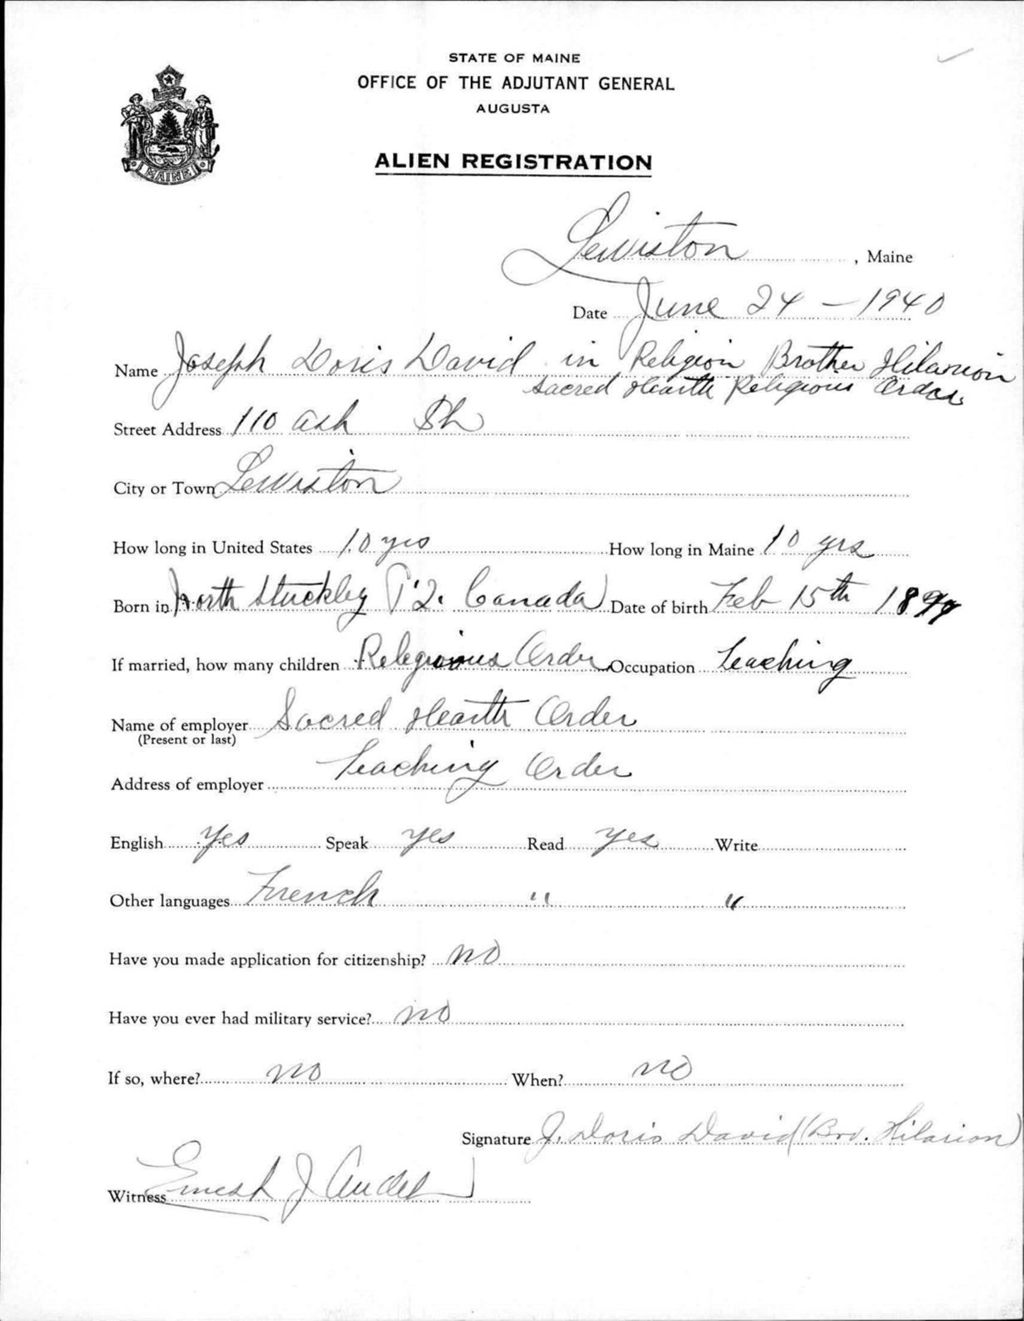 STATE OF MAINE
OFFICE OF THE ADJUTANT GENERAL
AUGUSTA
MAINE
ALIEN REGISTRATION
Lewiston, Maine
Date June 24 - 1940
Name Joseph Doris David in Religion Brother Hilarion
Sacred Hearth Religious Order
Street Address 110 Ash St
City or Town Lewiston
How long in United States 10 yrs How long in Maine 10 yrs
Born in North Stuckley P.Q. Canada Date of birth Feb 15th
If married, how many children Religious Order Occupation Teaching
Name of employer Sacred Hearth Order
(Present or last)
Address of employer Teaching Order
English yes Speak yes Read yes Write
Other languages French " "
Have you made application for citizenship? no
Have you ever had military service? no
If so, where? no When? no
Signature J. Doris David (Bro. Hilarion)
Witness Ernest J